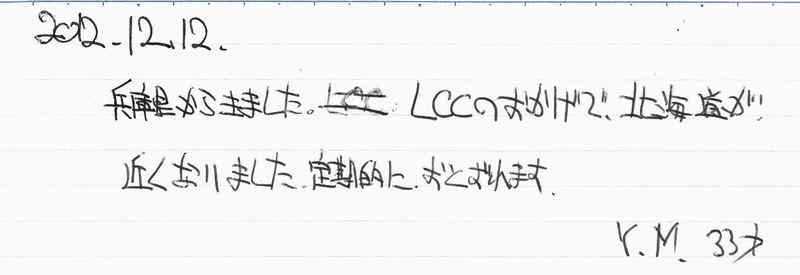 2012.12.12.
兵庫県からきました。LCCのおかげで、北海道が
近くなりました、定期的に、おとずれます。
Y.M. 33才